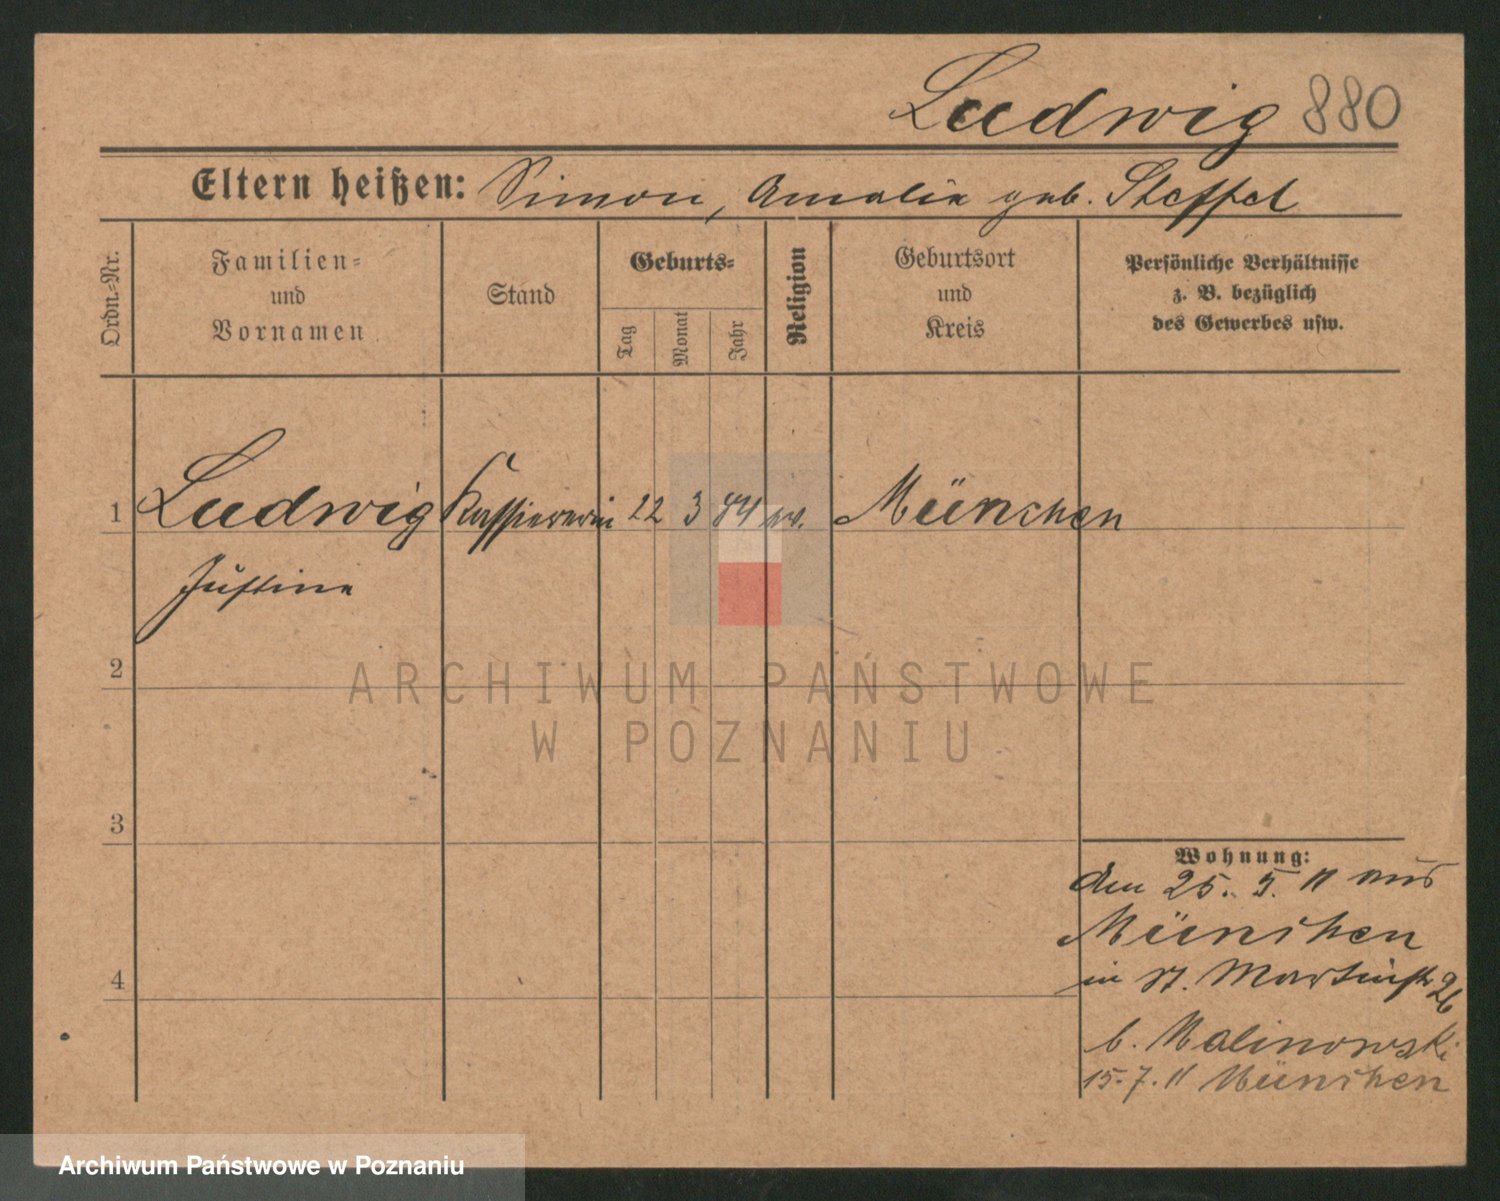 Ludwig 880
Eltern heißen: Simon, Amalie geb. Steffel
Ordn.-Nr.
Familien-
und
Vornamen
Stand
Geburts-
Tag
Monat
Jahr
Religion
Geburtsort
und
Kreis
Persönliche Verhältnisse
z. B. bezüglich
des Gewerbes usw.
1 Ludwig Kassiererin 22 3 84 ev. München
Justine
2
3
4
Wohnung:
den 25. 5. 11 aus
München
in St. Martinstr 26
b. Malinowski
15.7.11 München
ARCHIWUM PAŃSTWOWE
W POZNANIU
Archiwum Państwowe w Poznaniu